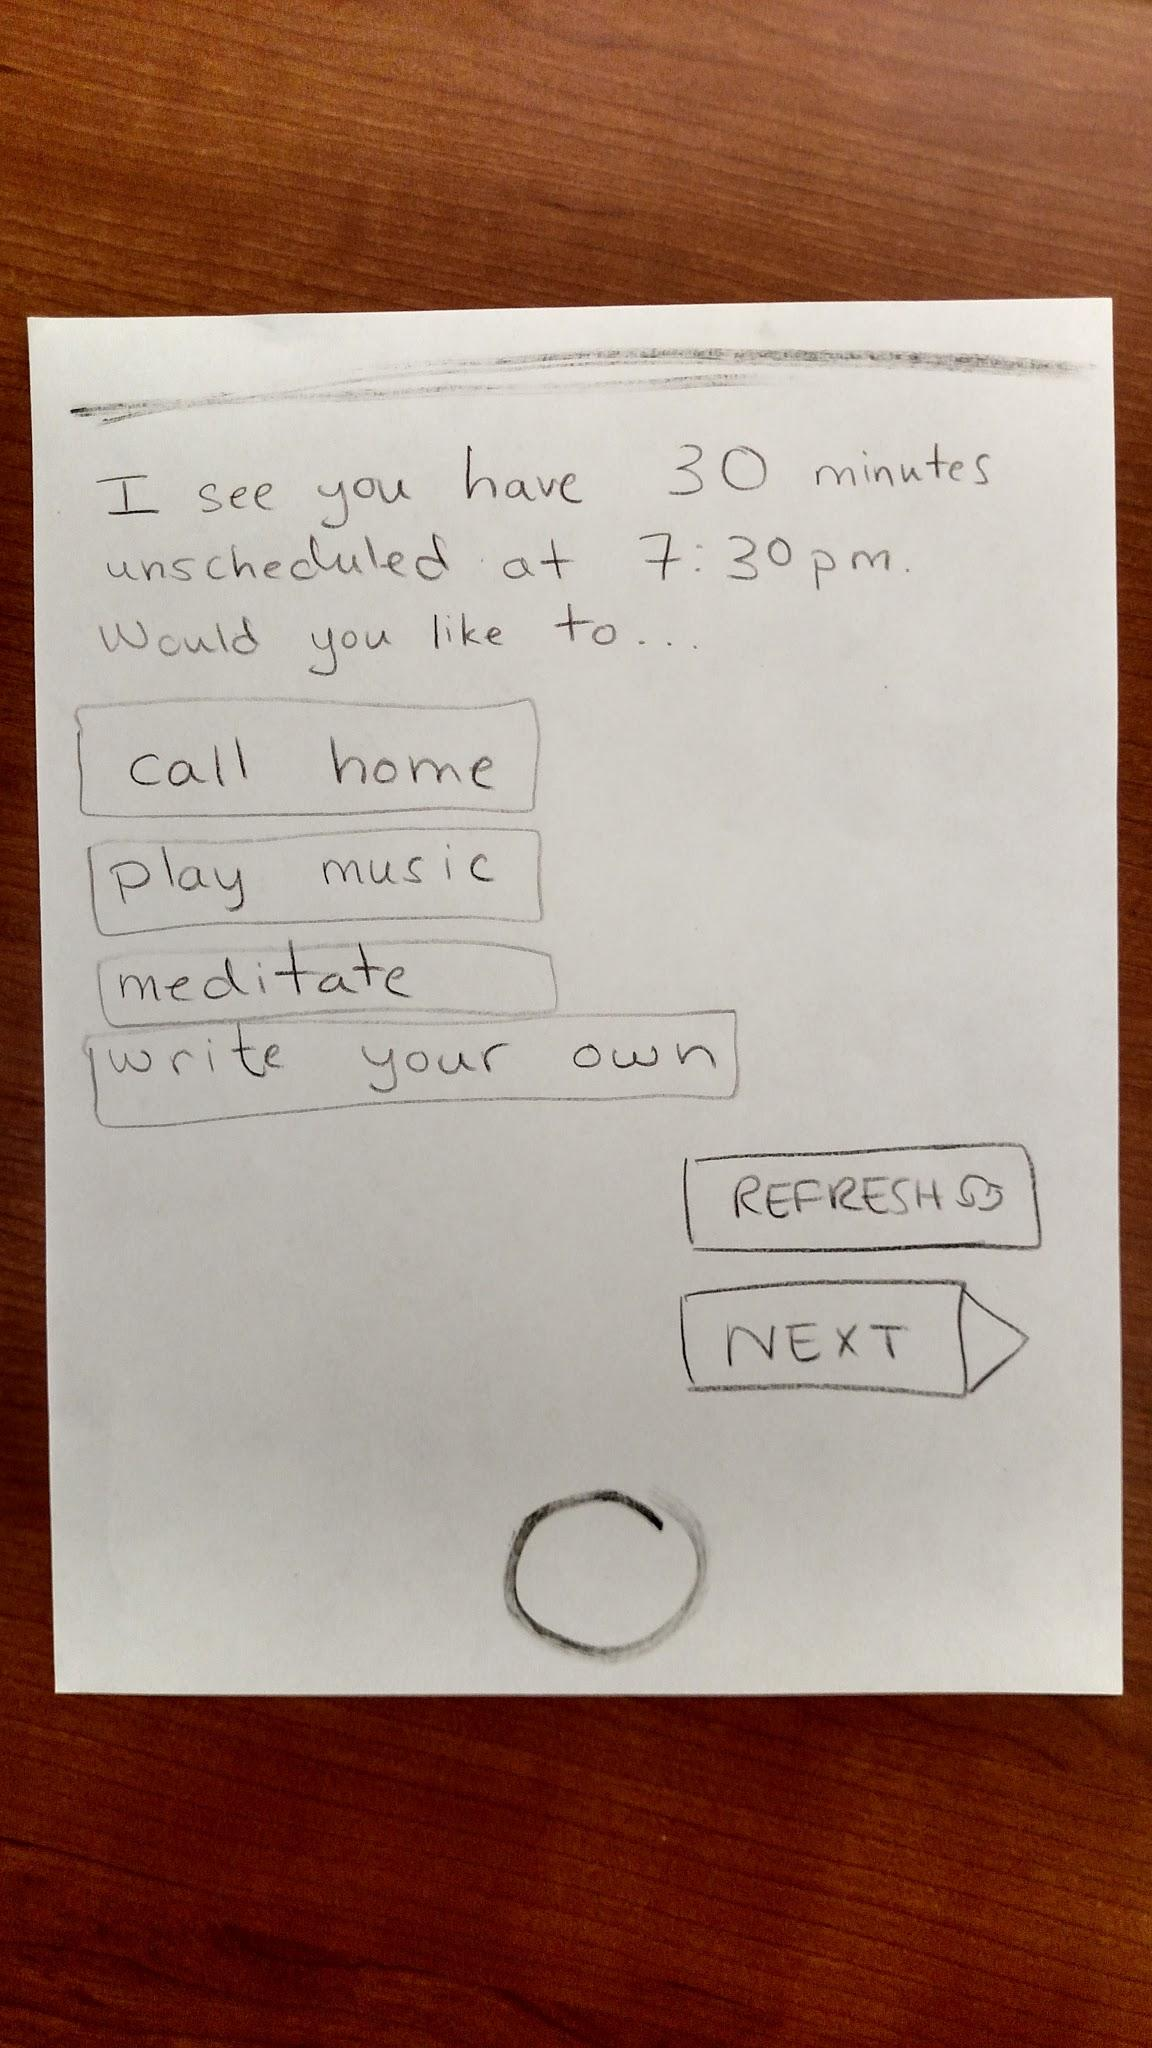 I see you have 30 minutes
unscheduled at 7:30pm.
Would you like to...
call home
play music
meditate
write your own
REFRESH
NEXT